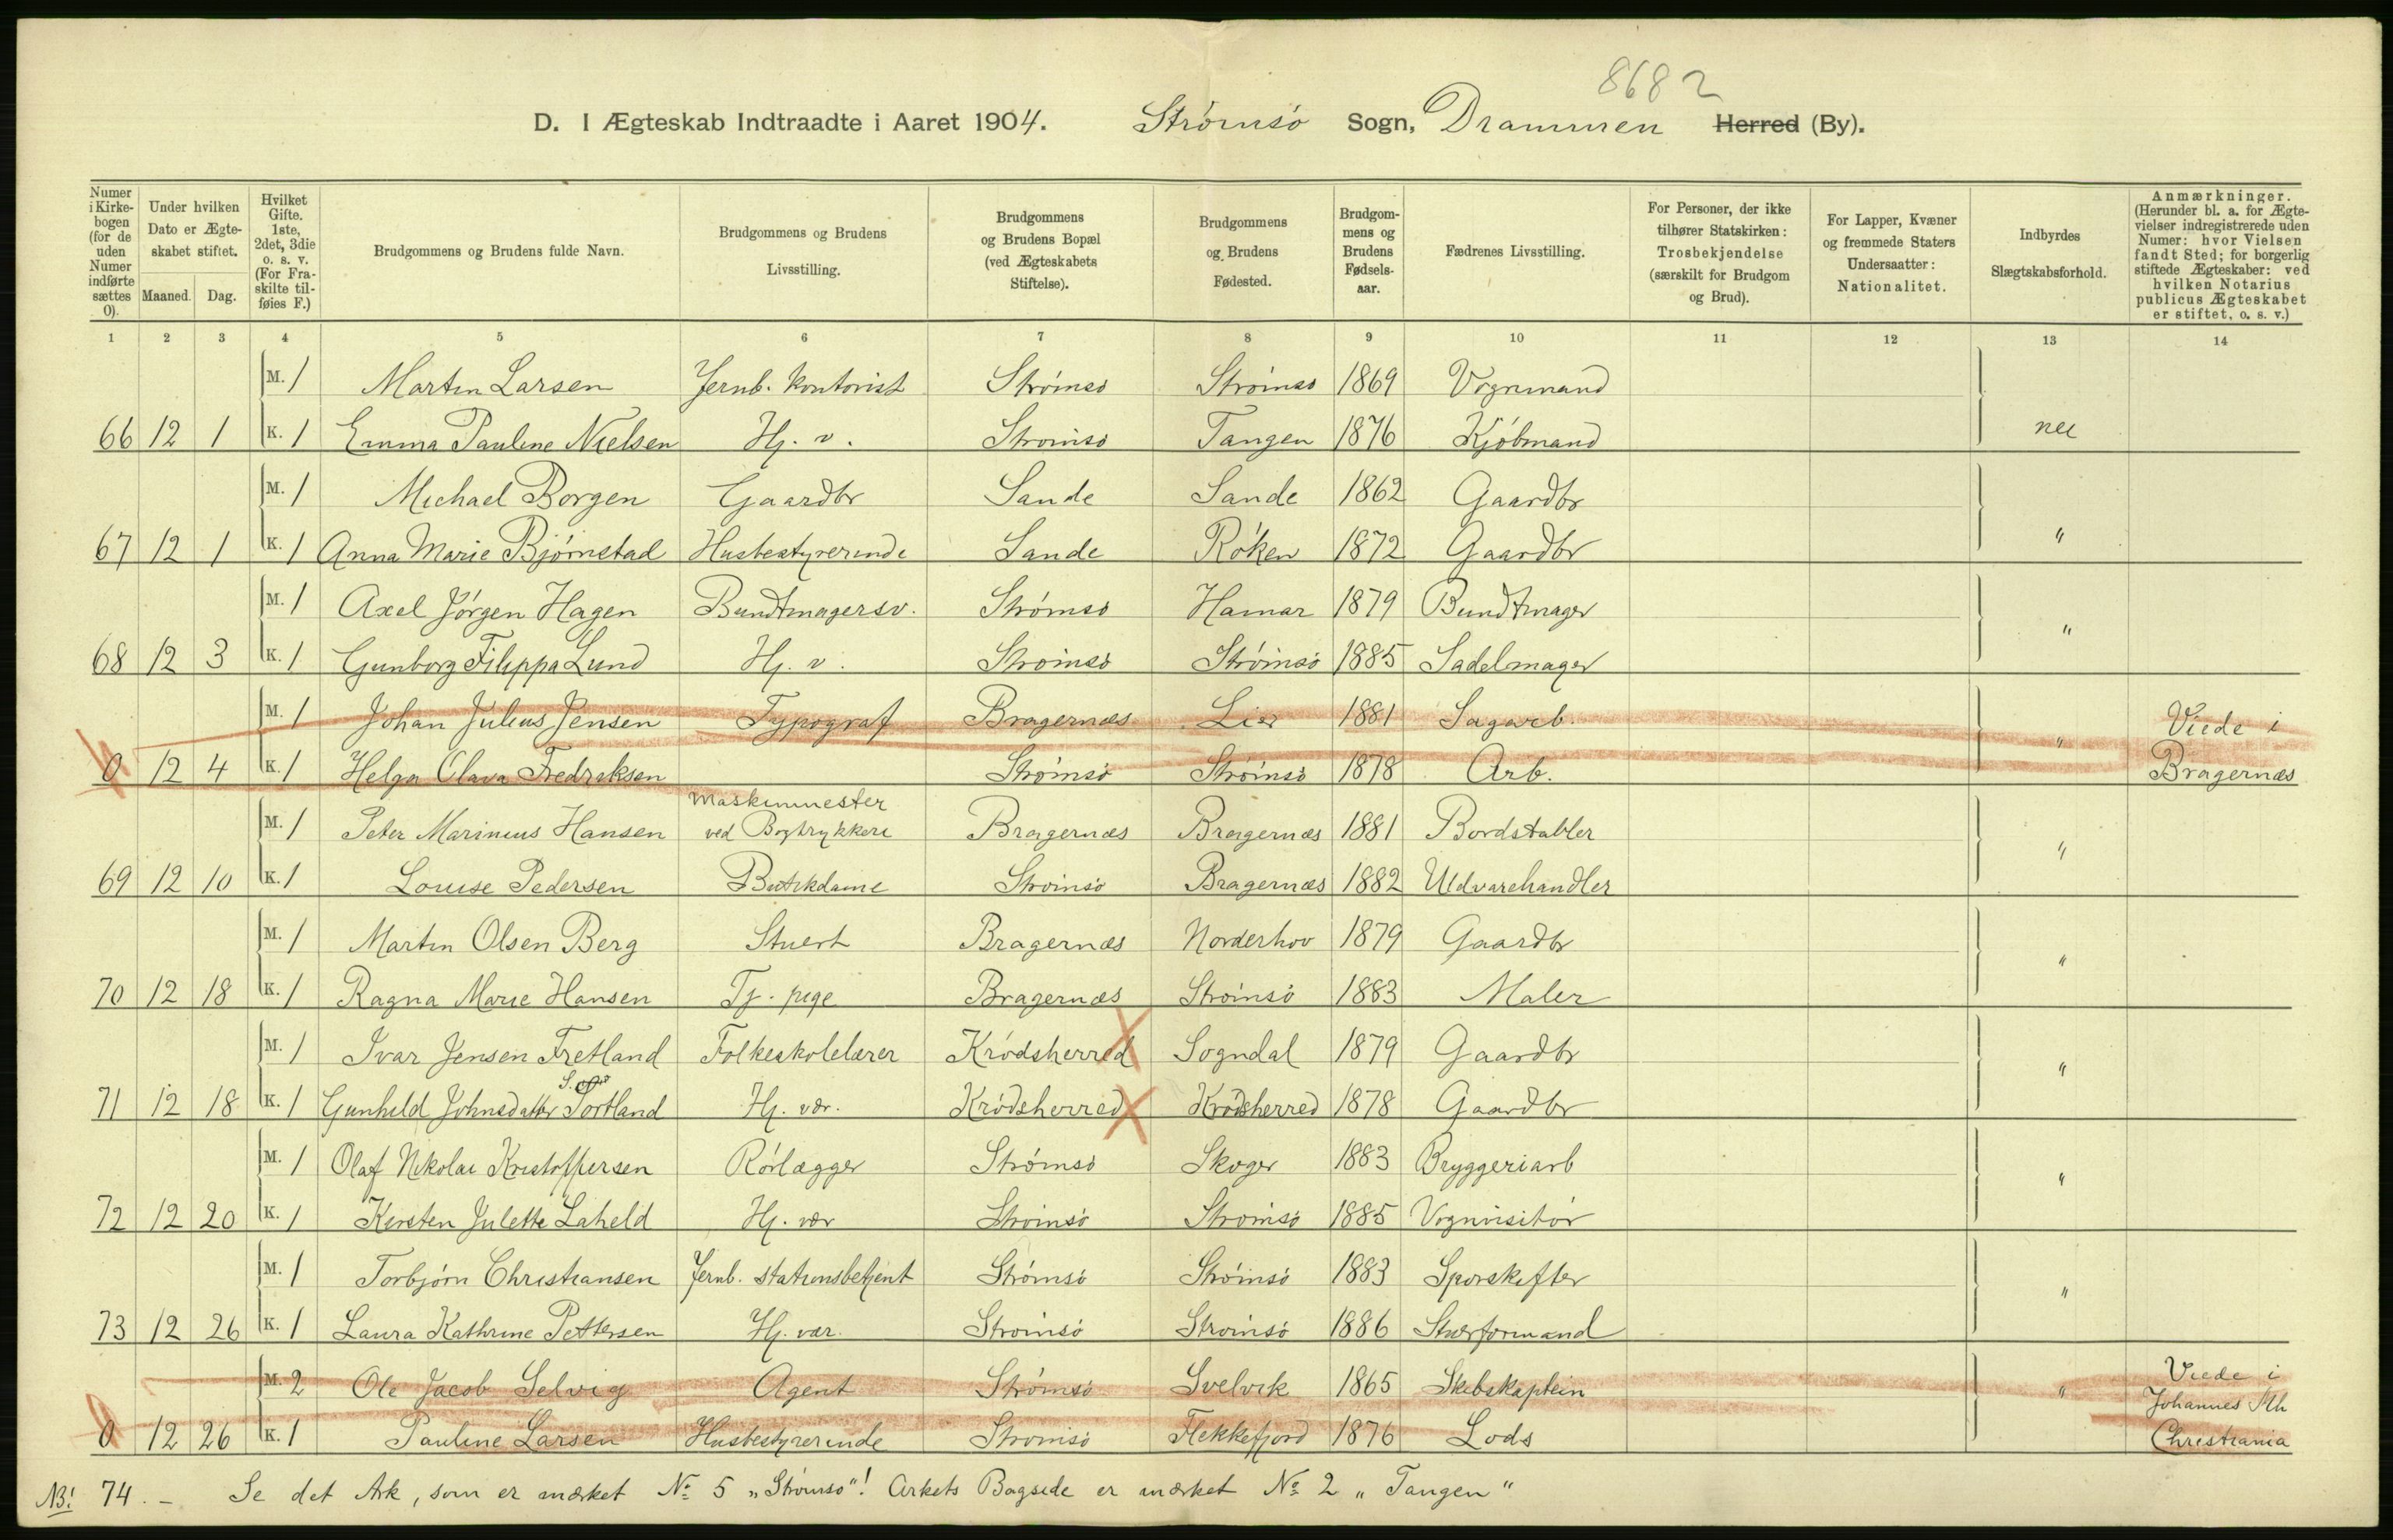 8682
D. I Ægteskab Indtraadte i Aaret 1904. Strømsø Sogn, Drammen Herred (By).
Numer i Kirkebogen (for de uden Numer indførte sættes 0).
Under hvilken Dato er Ægteskabet stiftet.
Maaned. Dag.
Hvilket Gifte. 1ste, 2det, 3die o. s. v. (For Fraskilte tilføies F.)
Brudgommens og Brudens fulde Navn.
Brudgommens og Brudens Livsstilling.
Brudgommens og Brudens Bopæl (ved Ægteskabets Stiftelse).
Brudgommens og Brudens Fødested.
Brudgommens og Brudens Fødselsaar.
Fædrenes Livsstilling.
For Personer, der ikke tilhører Statskirken: Trosbekjendelse (særskilt for Brudgom og Brud).
For Lapper, Kvæner og fremmede Staters Undersaatter: Nationalitet.
Indbyrdes Slægtskabsforhold.
Anmærkninger. (Herunder bl. a. for Ægtevielser indregistrerede uden Numer: hvor Vielsen fandt Sted; for borgerlig stiftede Ægteskaber: ved hvilken Notarius publicus Ægteskabet er stiftet, o. s. v.)
1 2 3 4 5 6 7 8 9 10 11 12 13 14
M. 1 Martin Larsen Jernb. kontorist Strømsø Strømsø 1869 Vognmand
66 12 1 K. 1 Emma Pauline Nielsen Hj. v. Strømsø Tangen 1876 Kjøbmand nei
M. 1 Michael Borgen Gaardbr Sande Sande 1862 Gaardbr
67 12 1 K. 1 Anna Marie Bjørnstad Husbestyrerinde Sande Røken 1872 Gaardbr "
M. 1 Axel Jørgen Hagen Bundtmagersv. Strømsø Hamar 1879 Bundtmager
68 12 3 K. 1 Gunborg Filippa Lund Hj. v. Strømsø Strømsø 1885 Sadelmager "
M. 1 Johan Julius Jensen Typograf Bragernæs Lier 1881 Sagarb. Viede i
0 12 4 K. 1 Helga Olava Fredriksen Strømsø Strømsø 1878 Arb. " Bragernæs
Maskinmester
M. 1 Peter Marinius Hansen ved Bogtrykkeri Bragernæs Bragernæs 1881 Bordstabler
69 12 10 K. 1 Louise Pedersen Butikdame Strømsø Bragernæs 1882 Uldvarehandler "
M. 1 Martin Olsen Berg Stuert Bragernæs Norderhov 1879 Gaardbr
70 12 18 K. 1 Ragna Marie Hansen Tj. pige Bragernæs Strømsø 1883 Maler "
M. 1 Ivar Jensen Fretland Folkeskolelærer Krødsherred Sogndal 1879 Gaardbr
71 12 18 K. 1 Gunhild Johnsdatter Sortland Hj. vær. Krødsherred Krødsherred 1878 Gaardbr "
M. 1 Olaf Nikolai Kristoffersen Rørlægger Strømsø Skoger 1883 Bryggeriarb
72 12 20 K. 1 Kirsten Julette Laheld Hj. vær Strømsø Strømsø 1885 Vognvisitør "
M. 1 Torbjørn Christiansen Jernb. stationsbetjent Strømsø Strømsø 1883 Sporskifter
73 12 26 K. 1 Laura Kathrine Pettersen Hj. vær. Strømsø Strømsø 1886 Stuerformand "
M. 2 Ole Jacob Selvig Agent Strømsø Svelvik 1865 Skibskaptein Viede i
" Johannes
0 12 26 K. 1 Pauline Larsen Husbestyrerinde Strømsø Flekkefjord 1876 Lods Christiania
NB! 74. – Se det Ark, som er mærket No 5 „Strømsø"! Arkets Bagside er mærket No 2 „Tangen"